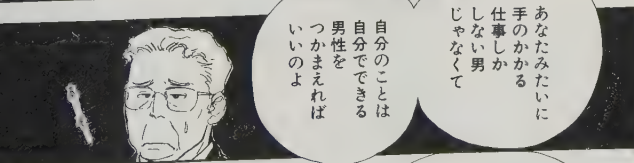 あなたみたいに
手のかかる
仕事しか
しない男
じゃなくて
自分のことは
自分でできる
男性を
つかまえれば
いいのよ